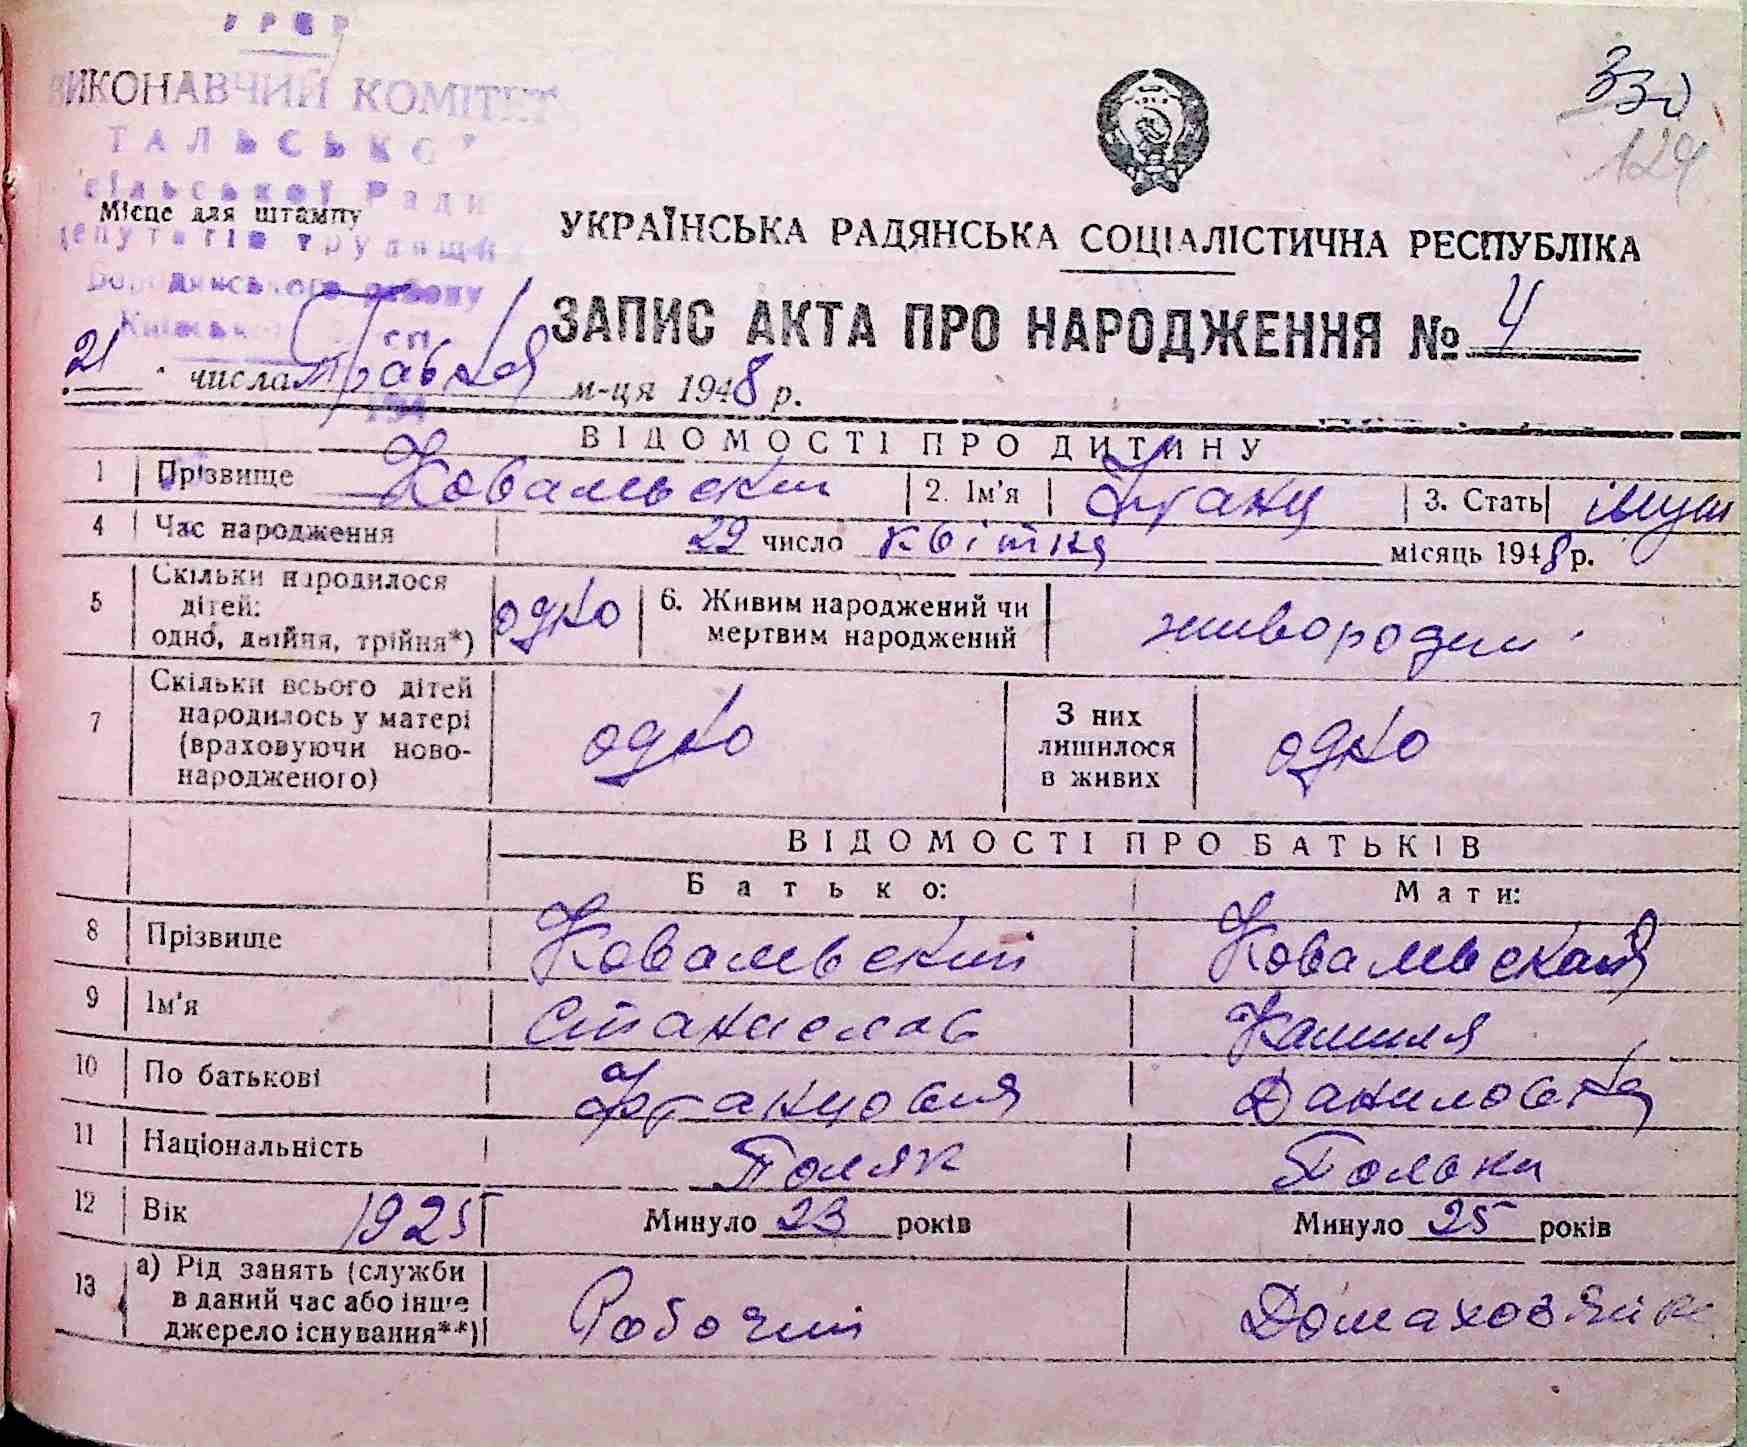 УРСР
ВИКОНАВЧИЙ КОМІТЕТ
ТАЛЬСЬКОЇ
сільської Ради
Місце для штампу
депутатів трудящих
Бородянського району
330
124
УКРАЇНСЬКА РАДЯНСЬКА СОЦІАЛІСТИЧНА РЕСПУБЛІКА
ЗАПИС АКТА ПРО НАРОДЖЕННЯ № 4
21 числа Травня м-ця 1948 р.
ВІДОМОСТІ ПРО ДИТИНУ
1 Прізвище Ковальский 2. Ім'я Франц 3. Стать муш
4 Час народження 29 число квітня місяць 1948 р.
5 Скільки народилося дітей: одно, двійня, трійня*) одно 6. Живим народжений чи мертвим народжений живородим
7 Скільки всього дітей народилось у матері (враховуючи новонародженого) одно З них лишилося в живих одно
ВІДОМОСТІ ПРО БАТЬКІВ
Батько: Мати:
8 Прізвище Ковальский Ковальская
9 Ім'я Станислав Камиля
10 По батькові Францовия Даниловна
11 Національність Поляк Полька
12 Вік 1925 Минуло 23 років Минуло 25 років
13 а) Рід занять (служби в даний час або інше джерело існування**) Робочий Домахозяйк